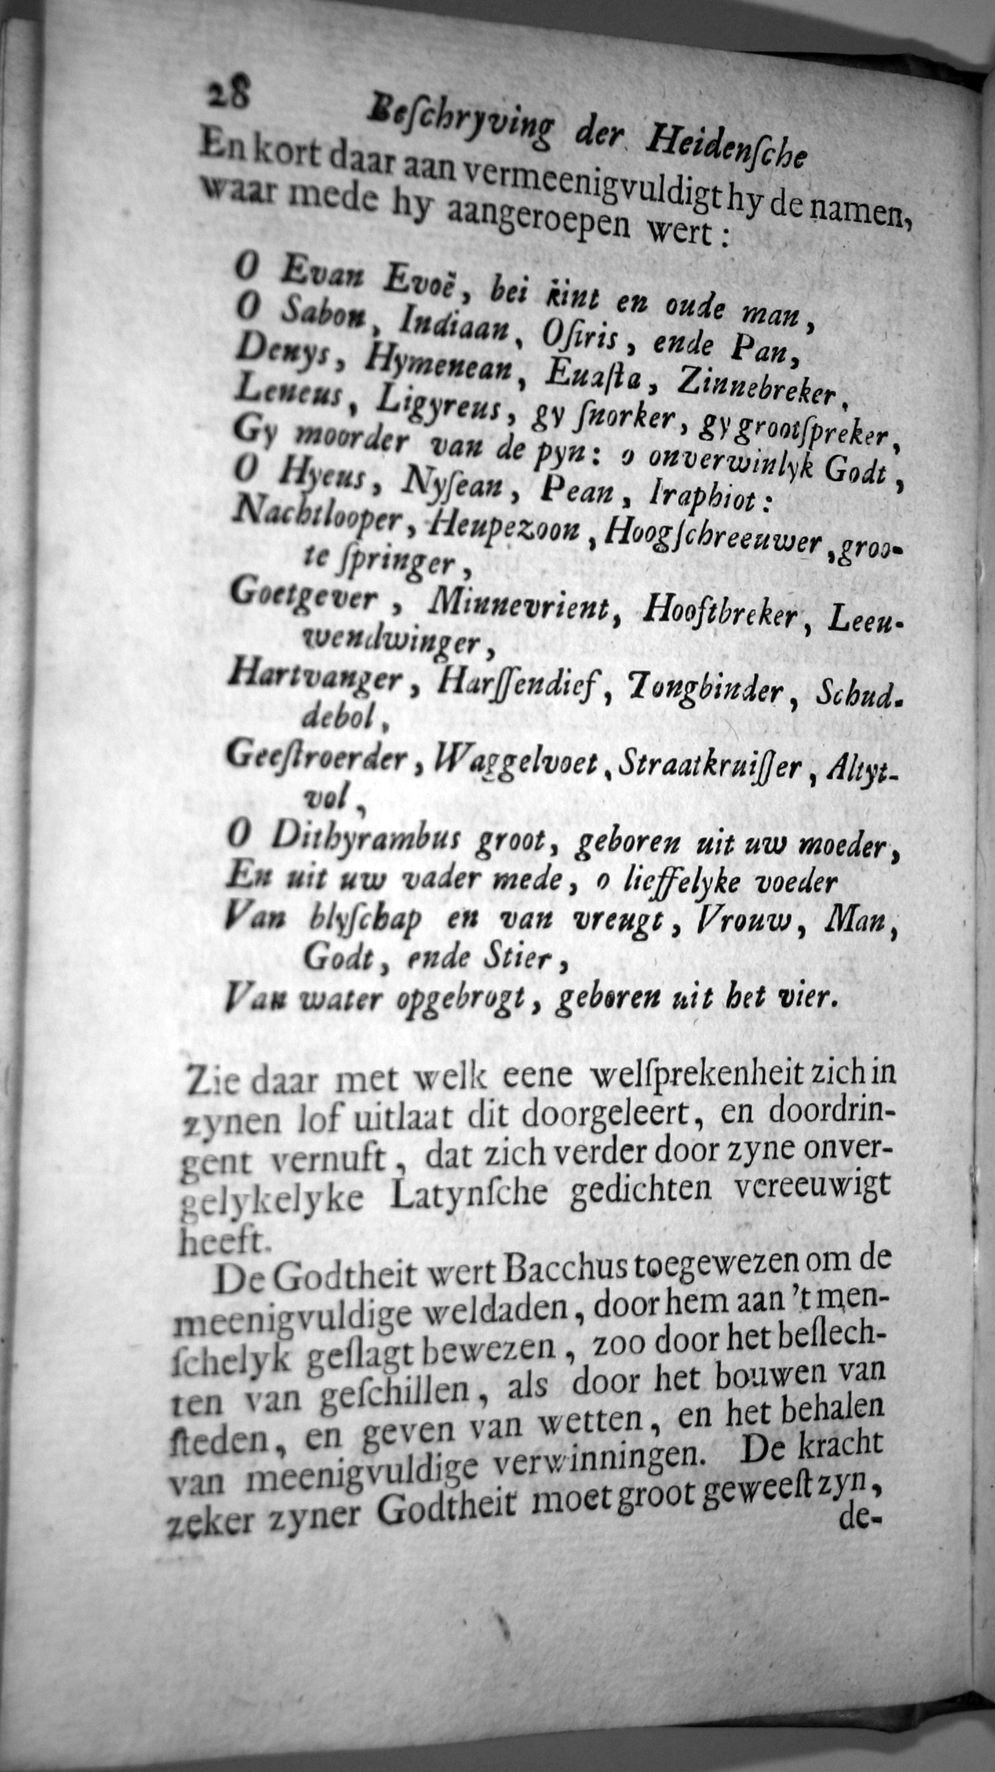 28 Beſchryving der Heidenſche
En kort daar aan vermeenigvuldigt hy de namen,
waar mede hy aangeroepen wert :
O Evan Evoë, bei kint en oude man,
O Sabon, Indiaan, Oſiris, ende Pan,
Denys, Hymenean, Euaſta, Zinnebreker,
Leneus, Ligyreus, gy ſnorker, gy grootſpreker,
Gy moorder van de pyn: o onverwinlyk Godt,
O Hyeus, Nyſean, Pean, Iraphiot:
Nachtlooper, Heupezoon, Hoogſchreeuwer, groo-
te ſpringer,
Goetgever, Minnevrient, Hooftbreker, Leeu-
wendwinger,
Hartvanger, Harſſendief, Tongbinder, Schud-
debol,
Geeſtroerder, Waggelvoet, Straatkruiſſer, Altyt-
vol,
O Dithyrambus groot, geboren uit uw moeder,
En uit uw vader mede, o lieffelyke voeder
Van blyſchap en van vreugt, Vrouw, Man,
Godt, ende Stier,
Van water opgebrogt, geboren uit het vier.
Zie daar met welk eene welſprekenheit zich in
zynen lof uitlaat dit doorgeleert, en doordrin-
gent vernuft, dat zich verder door zyne onver-
gelykelyke Latynſche gedichten vereeuwigt
heeft.
De Godtheit wert Bacchus toegewezen om de
meenigvuldige weldaden, door hem aan 't men-
ſchelyk geſlagt bewezen, zoo door het beſlech-
ten van geſchillen, als door het bouwen van
ſteden, en geven van wetten, en het behalen
van meenigvuldige verwinningen. De kracht
zeker zyner Godtheit moet groot geweeſt zyn,
de-